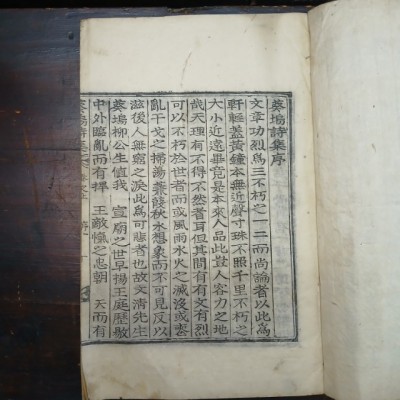 葵塢詩集序
文章功烈爲三不朽之一二而尚論者以此爲
軒輊蓋黃鐘本無近聲寸珠不照千里不朽之
大小近遠畢竟是本來人品此豈人容力之地
哉天理有不得不然者耳但其間有有文有烈
可以不朽於世者而或風雨水火之滅沒或喪
亂干戈之掃蕩蒹葭秋水想象而不可見反以
滋後人無窮之淚此爲可悲者也故文清先生
葵塢柳公生值我 宣廟之世早揚王庭歷敭
中外臨亂而有捍 王敵愾之忠朝 天而有